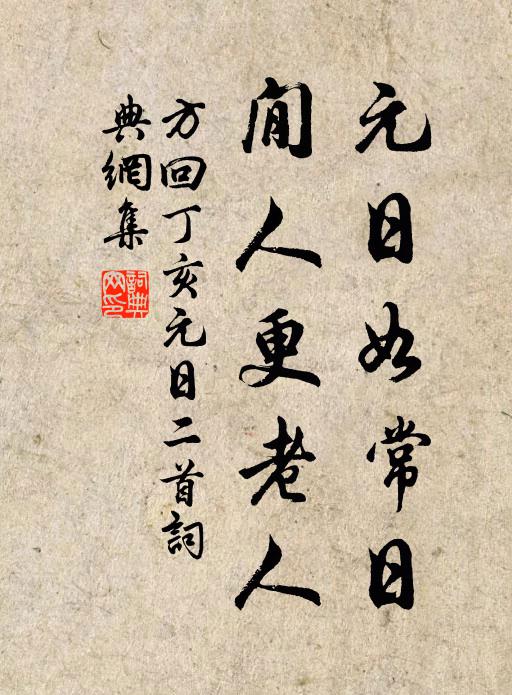 元日如常日
閒人更老人
方回丁亥元日二首詞
典網集
詞典網印